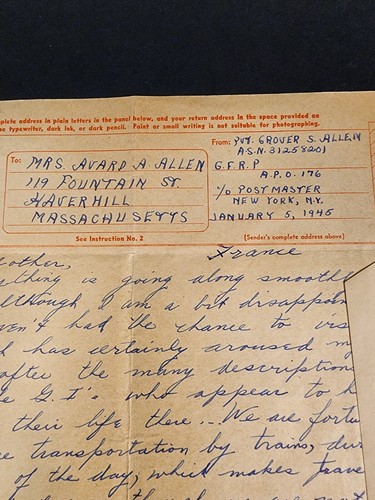 plete address in plain letters in the panel below, and your return address in the space provided on
e typewriter, dark ink, or dark pencil. Faint or small writing is not suitable for photographing.
To:
MRS. AVARD A. ALLEN
119 FOUNTAIN ST.
HAVERHILL
MASSACHUSETTS
See Instruction No. 2
From: PVT. GROVER S. ALLEN
A.S.N. 31258201
G.F.R.P
A.P.O. 176
c/o POSTMASTER
NEW YORK, N.Y.
JANUARY 5, 1945
(Sender's complete address above)
France
other,
ything is going along smooth
lthough I am a bit disappoin
ven't had the chance to vis
has certainly aroused my
after the many description
e G.I's who appear to h
their life there... We are fortu
e transportation by trains, du
of the day, which makes trave